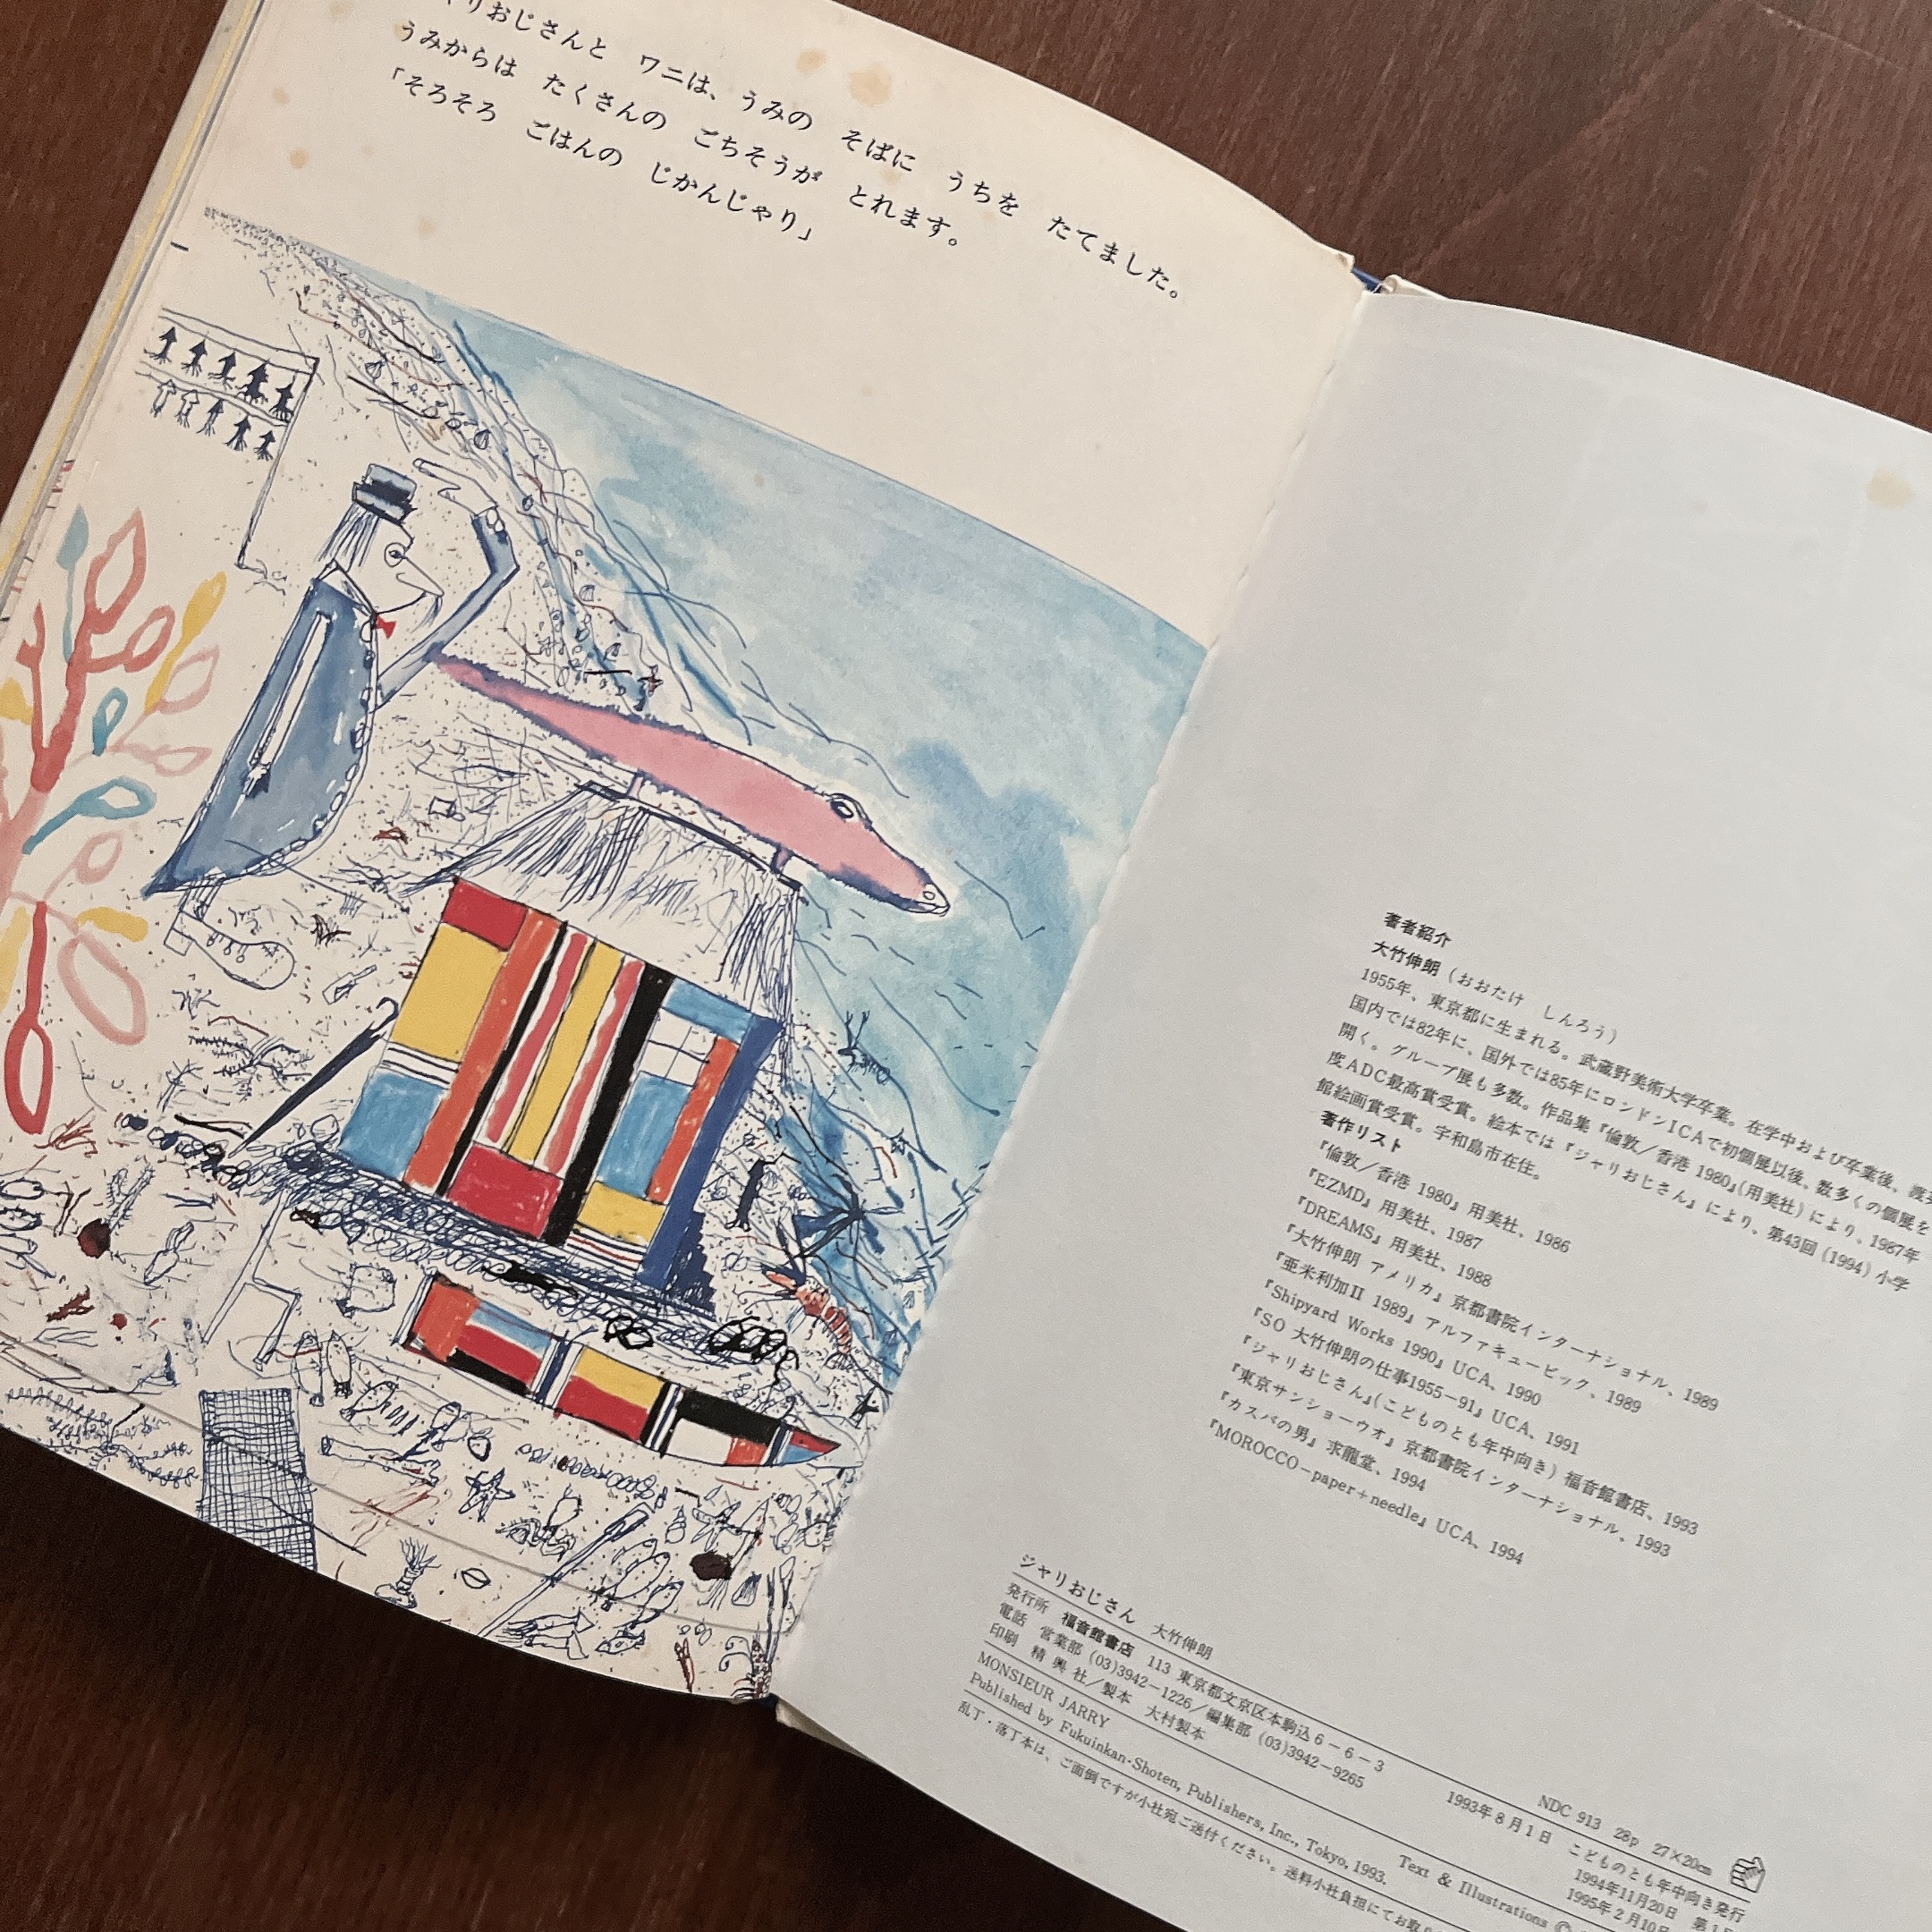 りおじさんと ワニは、うみの そばに うちを たてました。
うみからは たくさんの ごちそうが とれます。
「そろそろ ごはんの じかんじゃり」
著者紹介
大竹伸朗(おおたけ しんろう)
1955年、東京都に生まれる。武蔵野美術大学卒業。在学中および卒業後、渡
国内では82年に、国外では85年にロンドンICAで初個展以後、数多くの個展を
開く。グループ展も多数。作品集『倫敦/香港 1980』(用美社)により、1987年
度ADC最高賞受賞。絵本では『ジャリおじさん』により、第43回(1994)小学
館絵画賞受賞。宇和島市在住。
著作リスト
『倫敦/香港 1980』用美社、1986
『EZMD』用美社、1987
『DREAMS』用美社、1988
『大竹伸朗 アメリカ』京都書院インターナショナル、1989
『亜米利加II 1989』アルファキュービック、1989
『Shipyard Works 1990』UCA、1990
『SO 大竹伸朗の仕事1955-91』UCA、1991
『ジャリおじさん』(こどものとも年中向き)福音館書店、1993
『東京サンショーウオ』京都書院インターナショナル、1993
『カスバの男』求龍堂、1994
『MOROCCO-paper+needle』UCA、1994
ジャリおじさん 大竹伸朗
NDC 913 28p 27×20cm
発行所 福音館書店 113 東京都文京区本駒込6-6-3
1993年8月1日 こどものとも年中向き発行
電話 営業部 (03)3942-1226/編集部 (03)3942-9265
1994年11月20日
印刷 精興社/製本 大村製本
1995年2月10日 第
MONSIEUR JARRY
Text & Illustrations ©
Published by Fukuinkan-Shoten, Publishers, Inc., Tokyo, 1993.
乱丁・落丁本は、ご面倒ですが小社宛ご送付ください。送料小社負担にてお取り